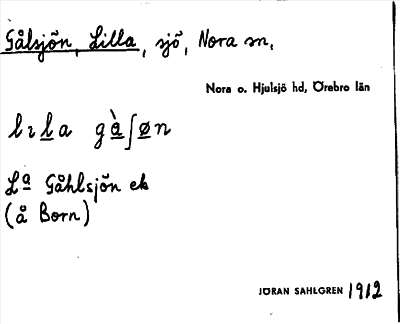 Gålsjön, Lilla, sjö, Nora sn,
Nora o. Hjulsjö hd, Örebro län
lɩl̲a gå̲̀ʃø̲n
L͟a Gåhlsjön ek
(å Born)
JÖRAN SAHLGREN 1912